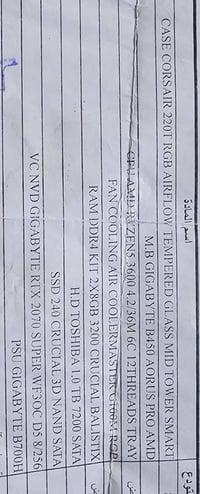 اسم المادة
CASE CORSAIR 220T RGB AIRFLOW TEMPERED GLASS MID TOWER SMART
M.B GIGABYTE B450 AORUS PRO AMD
CPU AMD RYZEN5 3600 4.2/36M 6C 12THREADS TRAY
FAN COOLING AIR COOLERMASTER G100M RGB
RAM DDR4 KIT 2X8GB 3200 CRUCIAL BALISTIX
H.D TOSHIBA 1.0 TB 7200 SATA
SSD 240 CRUCIAL 3D NAND SATA
VC NVD GIGABYTE RTX 2070 SUPER WF3OC D5 8/256
PSU GIGABYTE B700H